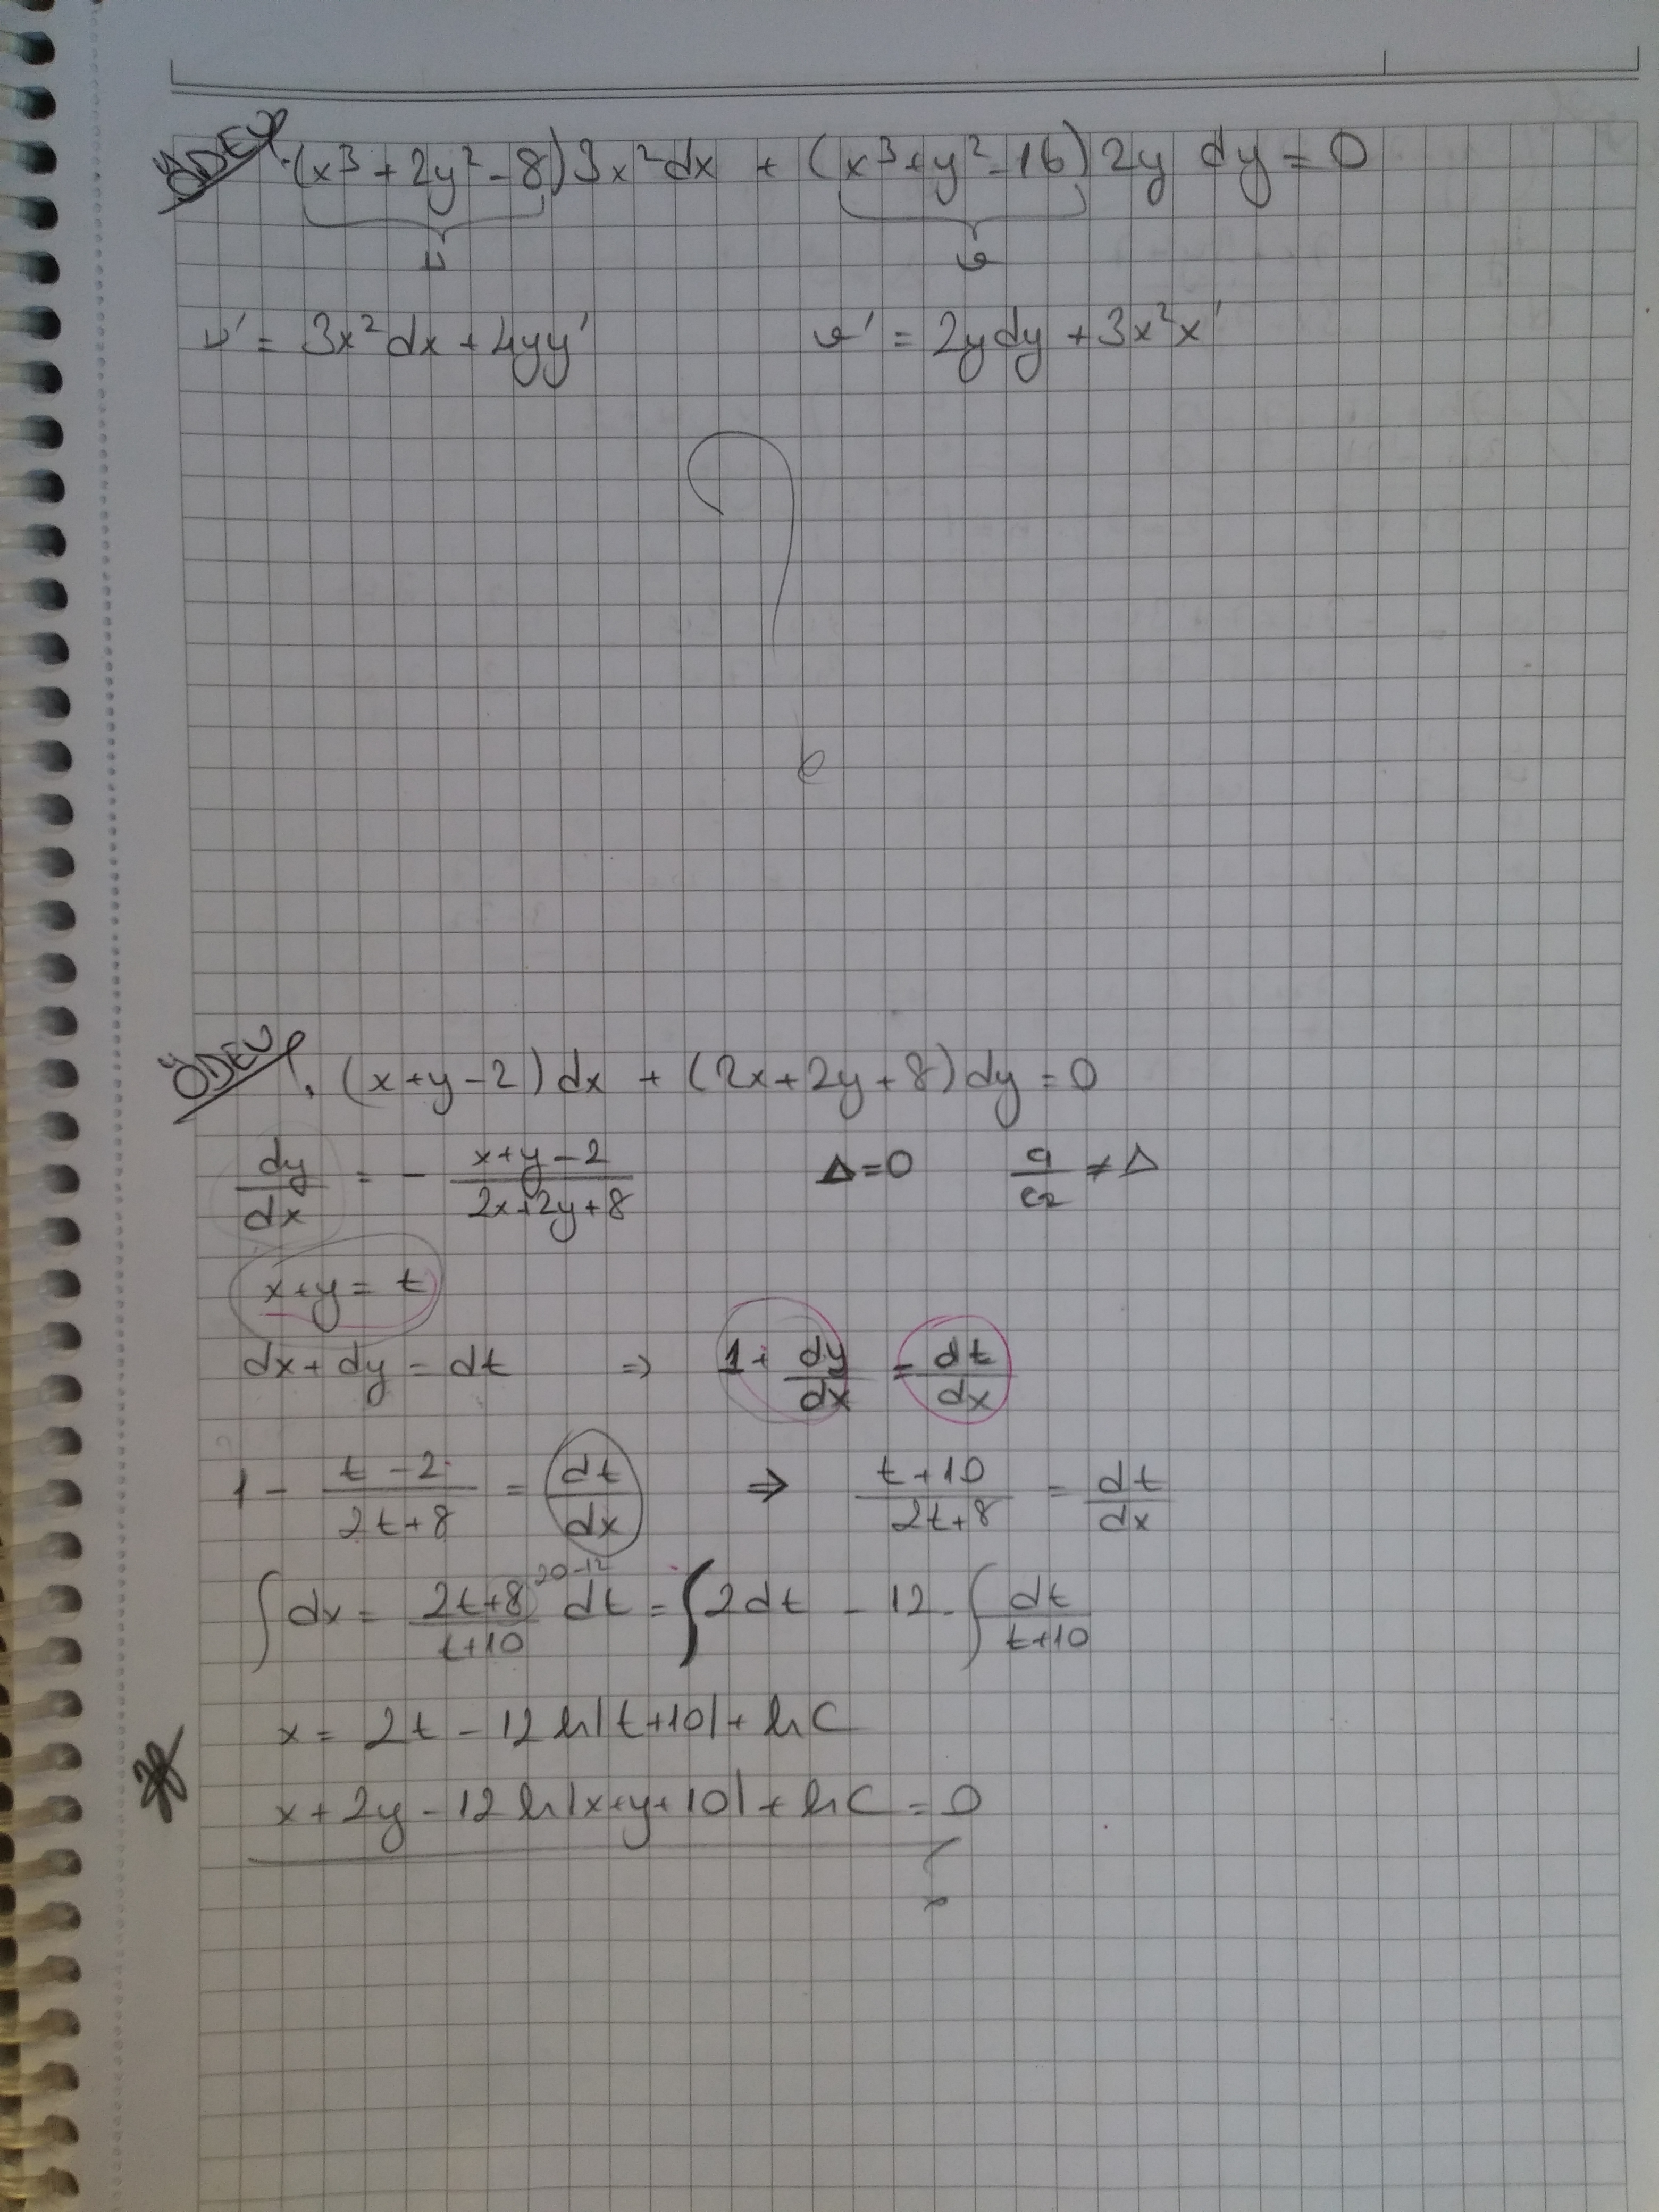 ÖDEV. (x³ + 2y² - 8) 3x² dx + (x³ + y² - 16) 2y dy = 0
u v
u' = 3x² dx + 4yy' v' = 2y dy + 3x² x'
?
ÖDEV. (x + y - 2) dx + (2x + 2y + 8) dy = 0
dy/dx = - (x + y - 2)/(2x + 2y + 8) Δ = 0 c₁/c₂ ≠ Δ
x + y = t
dx + dy = dt ⇒ 1 + dy/dx = dt/dx
1 - (t - 2)/(2t + 8) = dt/dx ⇒ (t + 10)/(2t + 8) = dt/dx
20-12
∫ dx = (2t + 8)/(t + 10) dt = ∫ 2dt - 12 ∫ dt/(t + 10)
x = 2t - 12 ln|t + 10| + ln C
x + 2y - 12 ln|x + y + 10| + ln C = 0
?